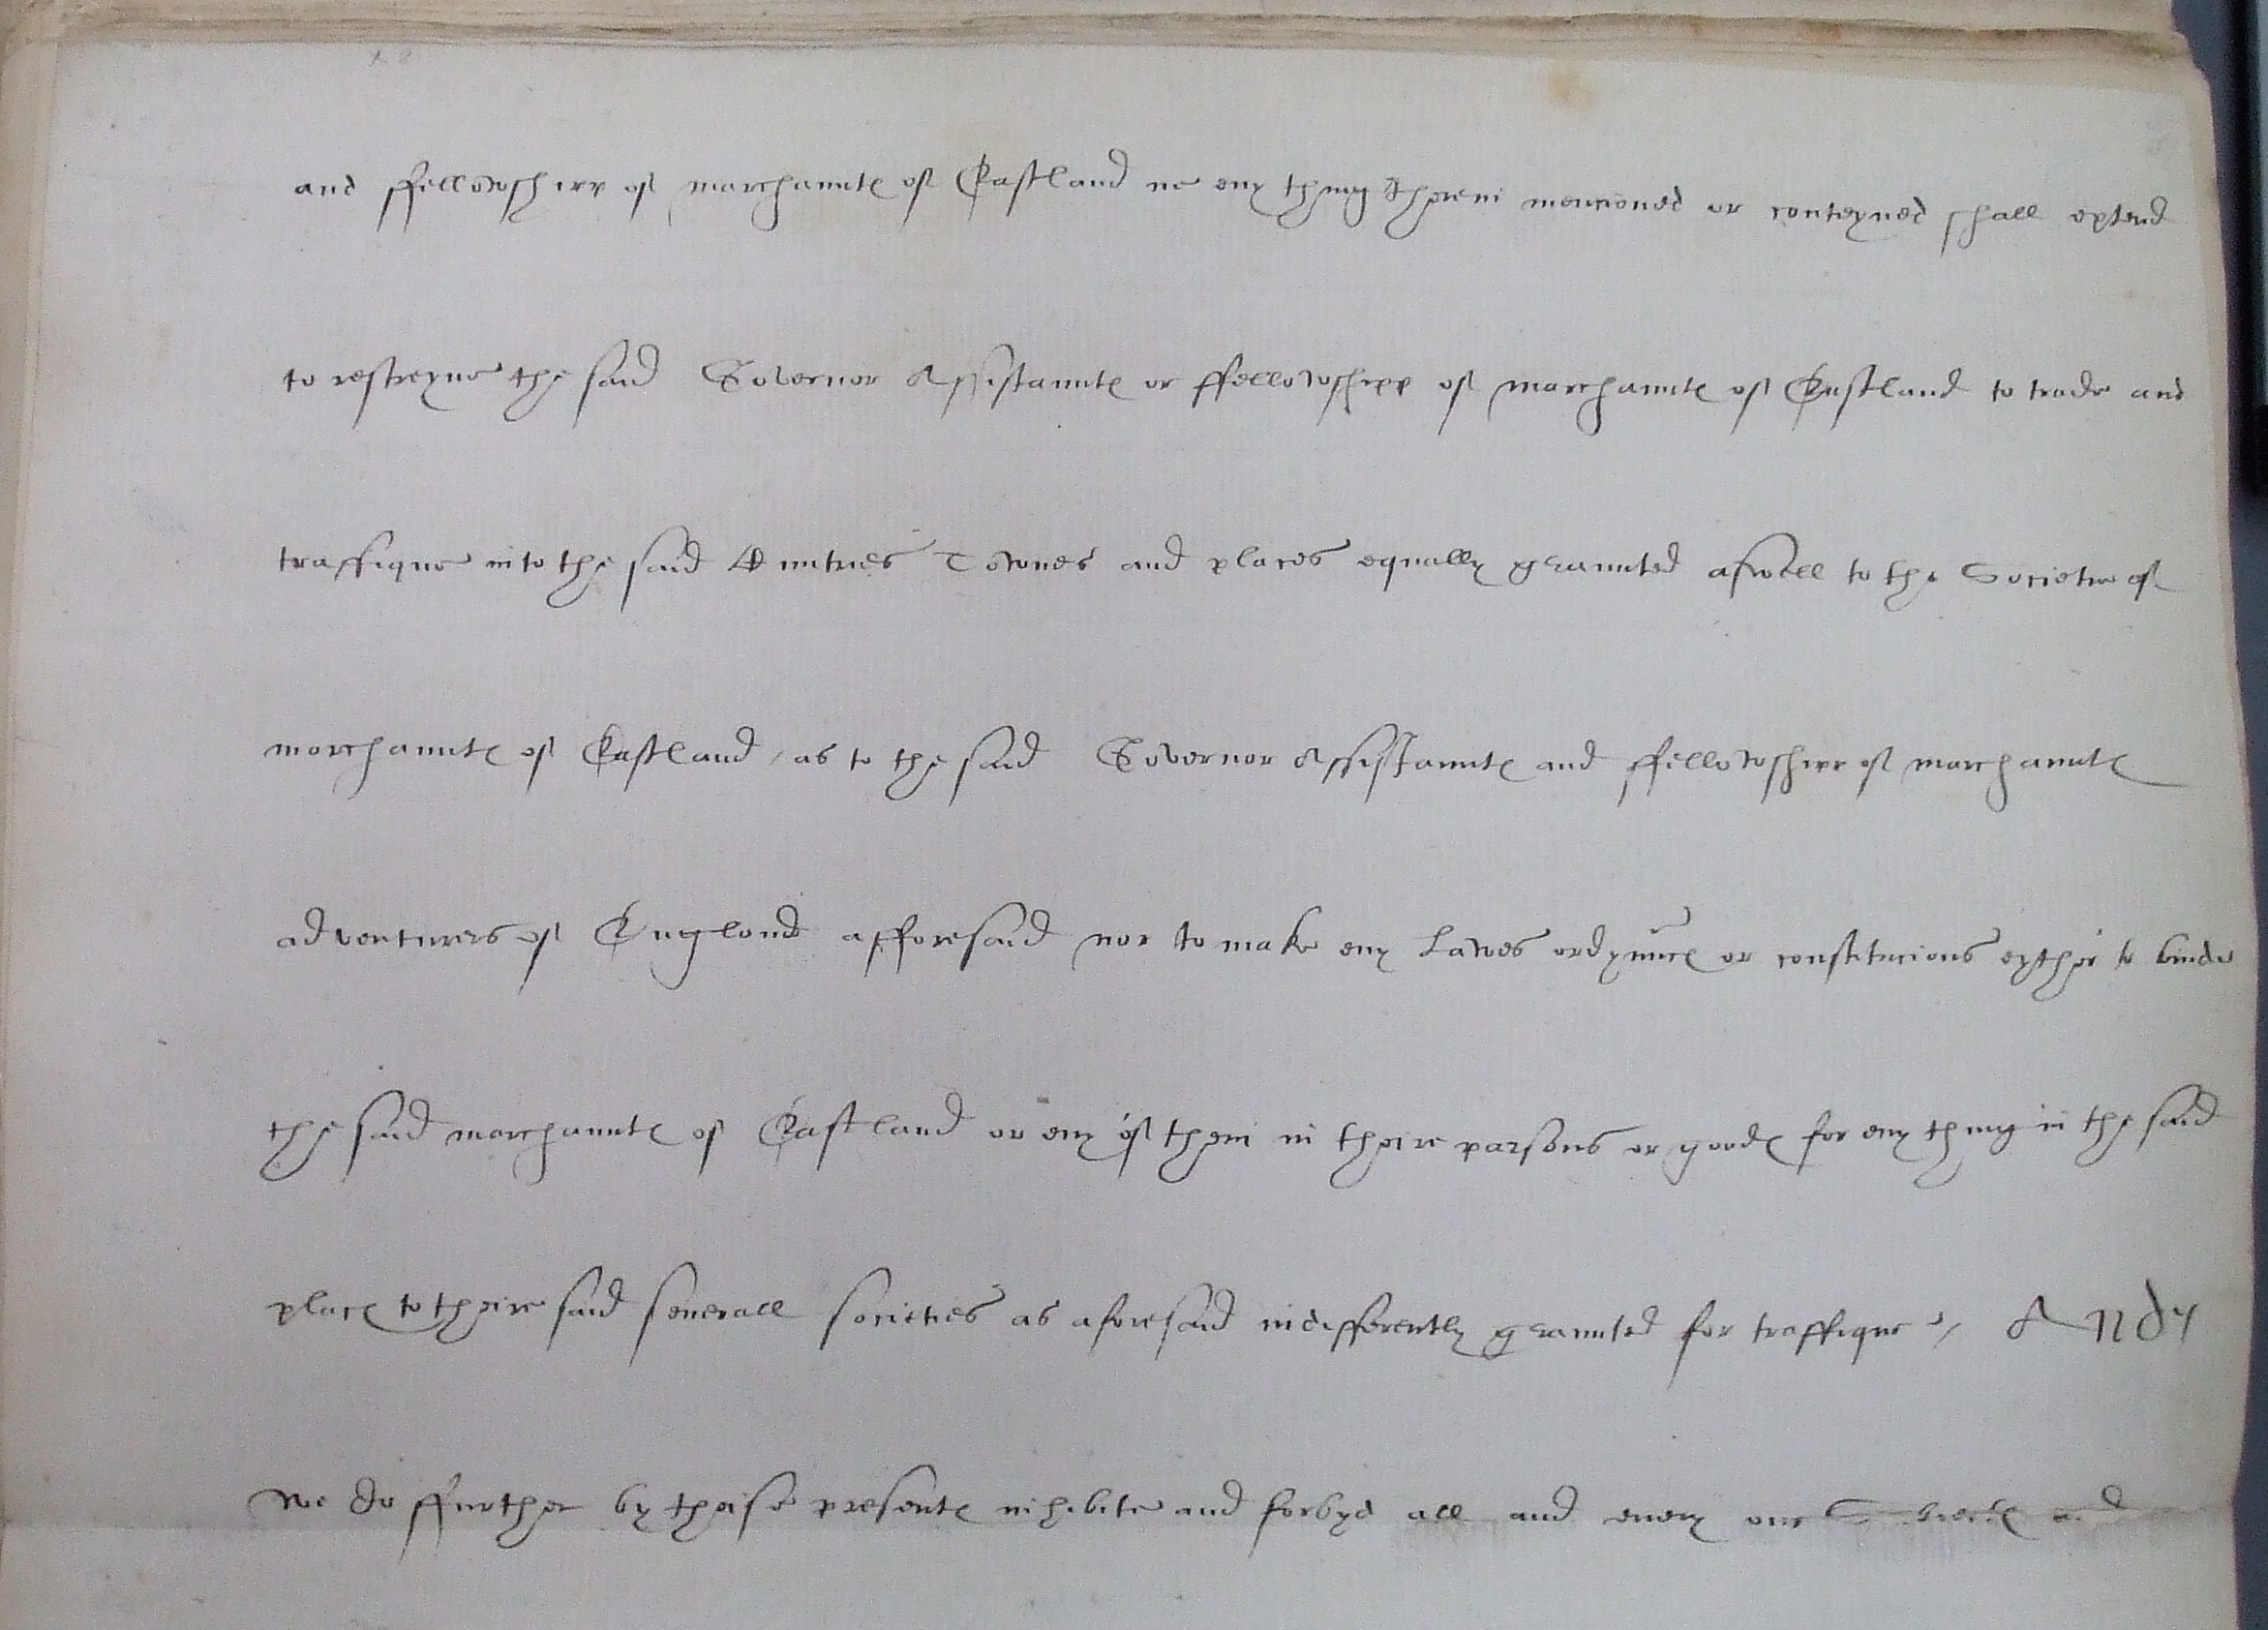 and ffellowshipp of marchauntes of Eastland ne eny thing therein mencioned or conteyned shall extend
to restreyne the said Governor Assistauntes or ffellowshipp of marchauntes of Eastland to trade and
traffique into the said Cuntries Townes and places equally graunted aswell to the Societie of
merchauntes of Eastland / as to the said Governor Assistauntes and ffellowshipp of marchauntes
adventurers of Englond afforesaid nor to make eny Lawes ordynnces or constitucions eyther to binde
the said marchauntes of Eastland or eny of them in theire parsons or goodes for eny thing in the said
places to theire said severall societies as aforesaid indifferently graunted for traffique / And
we do ffurther by theise presentes inhibite and forbyd all and every our and